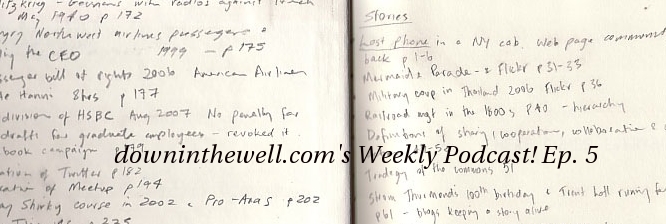 Blitzkrieg - Germans with radios against French
May 1940 p 172
Angry Northwest airlines passengers &
the CEO 1999 - p 175
passenger bill of rights 2006 American Airlines
Hanni 8hrs p 177
division of HSBC Aug 2007 No penalty for
drafts for graduate employees - revoked it.
book campaign p 179
of Twitter p 182
of Meetup p 194
Shirky course in 2002 & Pro-Anas p 202
p 225
Stories
Lost phone in a NY cab. Web page
back p 1-6
Mermaid Parade - & Flickr p 31-33
Military coup in Thailand 2006 Flickr p 36
Railroad mgt in the 1800s p 40 - hierarchy
Definitions of sharing, cooperation, collaboration &
Tradegy of the commons 51
Strom Thurmond's 100th birthday & Trent Lott running for
p 61 - blogs keeping a story alive
downinthewell.com's Weekly Podcast! Ep. 5